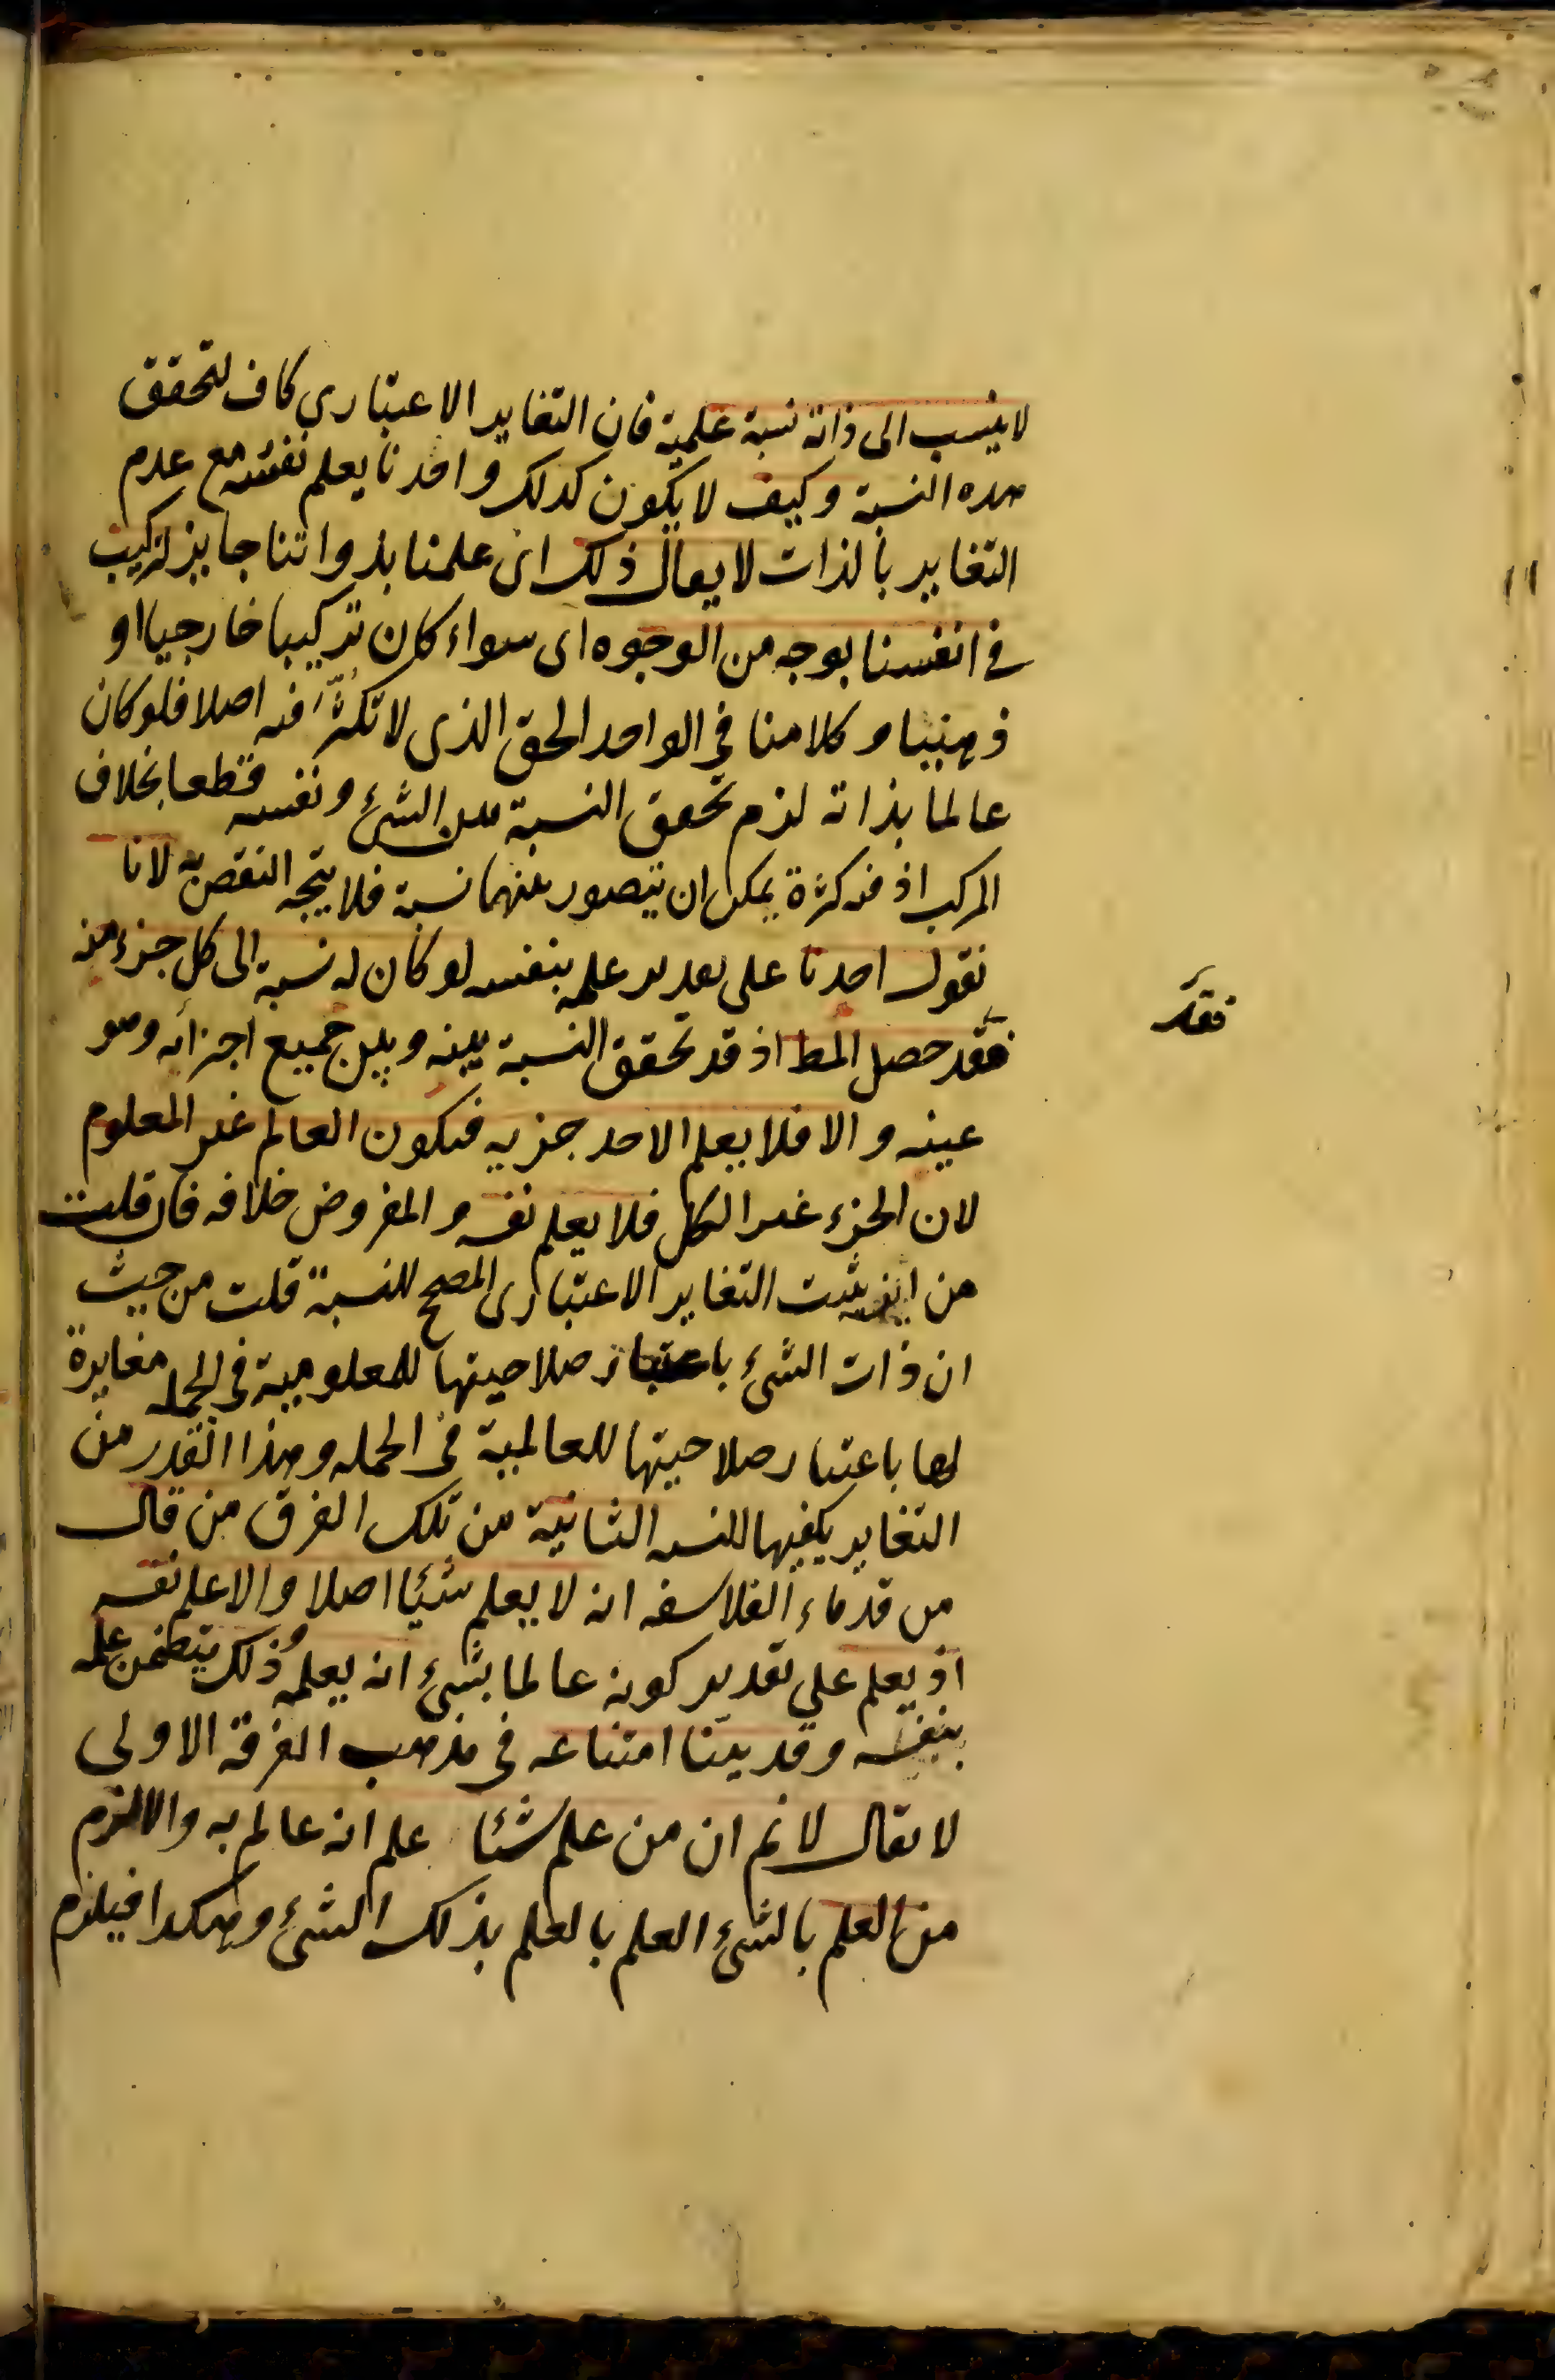 لا ينسب الى ذاته نسبة علمية فان التغاير الاعتبارى كاف لتحقق
هذه النسبة وكيف لا يكون كذلك واحدنا يعلم نفسه مع عدم
التغاير بالذات لا يقال ذلك اى علمنا بذواتنا جايز لتركيب
فى انفسنا بوجه من الوجوه اى سواء كان تركيبا خارجيا او
ذهنيا وكلامنا في الواحد الحق الذى لا تكثُّر فيه اصلا فلو كان
عالما بذاته لزم تحقق النسبة بين الشئ ونفسه قطعا بخلاف
المركب اذ فيه كثرة يمكن ان يتصور بينهما نسبة فلا يتجه النقض به لانا
نقول احدنا على تقدير علمه بنفسه لو كان له نسبة الى كل جزء منه
فقد حصل المط اذ قد تحقق النسبة بينه وبين جميع اجزائه وهو
فقد
عينه والا فلا يعلم الا احد جزيه فيكون العالم غير المعلوم
لان الجزء غير الكل فلا يعلم نفسه والمفروض خلافه فان قلت
من اين يثبت التغاير الاعتبارى المصحح للنسبة قلت من حيث
ان ذات الشئ باعتبار صلاحيتها للمعلومية فى الجمله مغايرة
لها باعتبار صلاحيتها للعالمية فى الجمله وهذا القدر من
التغاير يكفيها للنسبه الثانية من تلك الفرق من قال
من قدماء الفلاسفه انه لا يعلم شيئا اصلا والا علم نفسه
اذ يعلم على تقدير كونه عالما بشئ انه يعلمه وذلك يتضمن علمه
بنفسه وقد بيّنا امتناعه فى مذهب الفرقة الاولى
لا يقال لا نم ان من علم شيئا علم انه عالم به والا لزم
من العلم بالشئ العلم بالعلم بذلك الشئ وهكذا فيلزم